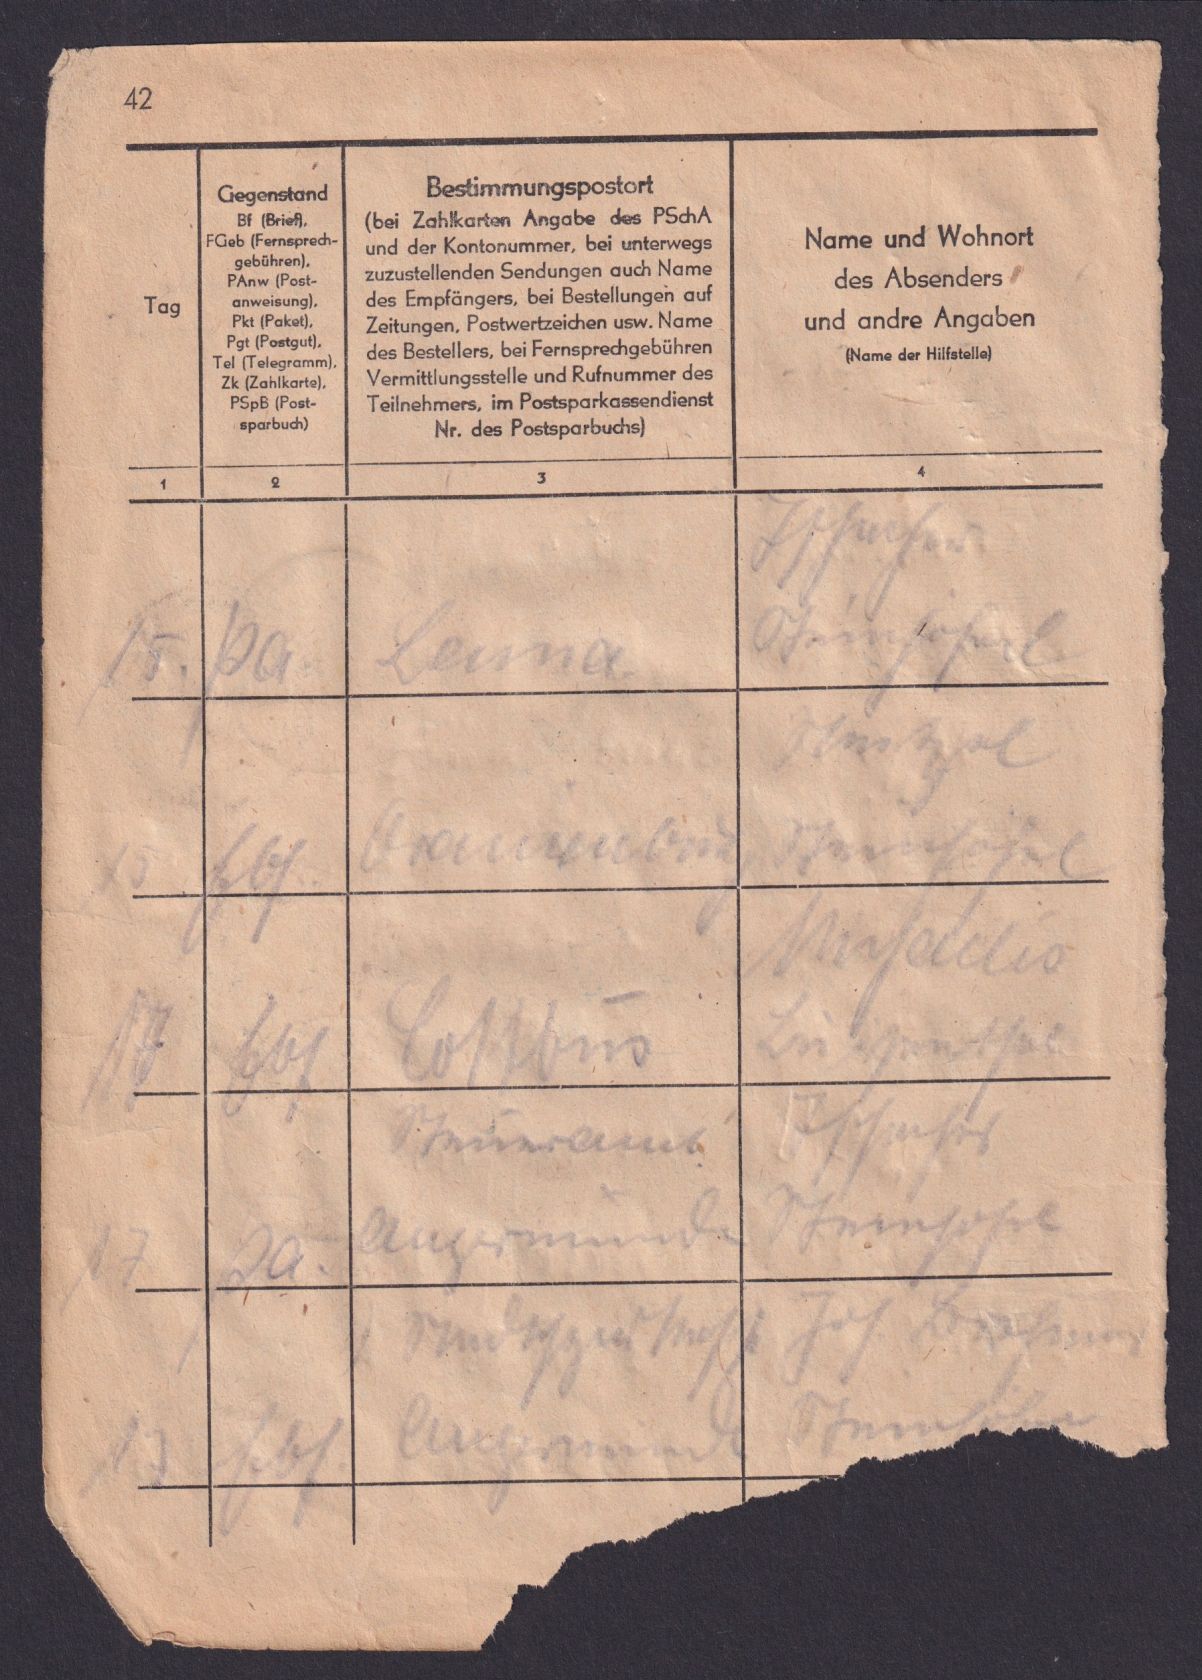 42
Tag
Gegenstand
Bf (Brief),
FGeb (Fernsprech-
gebühren),
PAnw (Post-
anweisung),
Pkt (Paket),
Pgt (Postgut),
Tel (Telegramm),
Zk (Zahlkarte),
PSpB (Post-
sparbuch)
Bestimmungspostort
(bei Zahlkarten Angabe des PSchA
und der Kontonummer, bei unterwegs
zuzustellenden Sendungen auch Name
des Empfängers, bei Bestellungen auf
Zeitungen, Postwertzeichen usw. Name
des Bestellers, bei Fernsprechgebühren
Vermittlungsstelle und Rufnummer des
Teilnehmers, im Postsparkassendienst
Nr. des Postsparbuchs)
Name und Wohnort
des Absenders
und andre Angaben
(Name der Hilfstelle)
1 2 3 4
15. Pa. Leuna. Steinhöfel
15 Ebf. Oranienburg Steinhöfel
17 Ebf Cottbus
Steueramt
17 Pa. Angermünde Steinhöfel
17 Ebf. Angermünde Steinhöfel